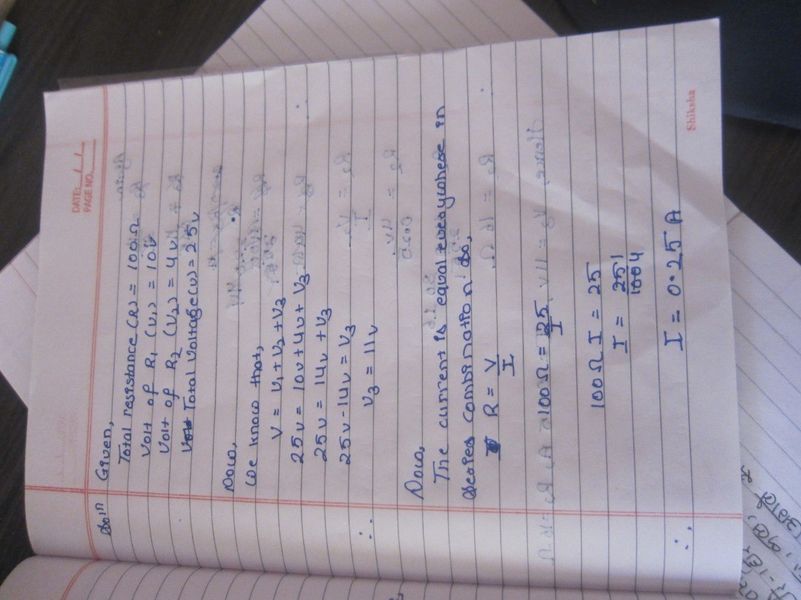 DATE: / /
PAGE NO.
Soln Given,
Total resistance (R) = 100Ω
Volt of R1 (V1) = 10V
Volt of R2 (V2) = 4V
Total Voltage (V) = 25V
Now,
We know that,
V = V1 + V2 + V3
25V = 10V + 4V + V3
25V = 14V + V3
25V - 14V = V3
∴ V3 = 11V
Now,
The current is equal everywhere in
series combination so,
R = V/I
100Ω = 25/I
100Ω I = 25
I = 251/1004
∴ I = 0.25A
Shiksha